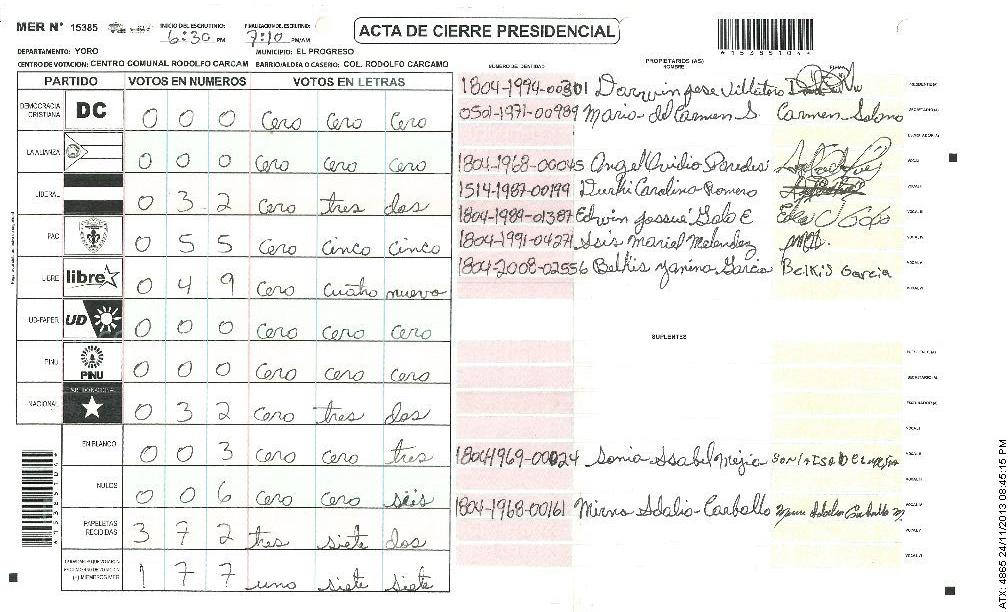 MER N° 15385 INICIO DEL ESCRUTINIO: 6:30 PM FINALIZACION DEL ESCRUTINIO: 7:10 PM/AM
ACTA DE CIERRE PRESIDENCIAL
DEPARTAMENTO: YORO MUNICIPIO: EL PROGRESO
CENTRO DE VOTACION: CENTRO COMUNAL RODOLFO CARCAM BARRIO/ALDEA O CASERIO: COL. RODOLFO CARCAMO
PARTIDO VOTOS EN NUMEROS VOTOS EN LETRAS
DEMOCRACIA CRISTIANA DC 0 0 0 Cero Cero Cero
LA ALIANZA 0 0 0 Cero Cero Cero
LIBERAL 0 3 2 Cero tres dos
PAC 0 5 5 Cero Cinco Cinco
LIBRE libre 0 4 9 Cero Cuatro nueve
UD-FAPER UD 0 0 0 Cero Cero Cero
PINU PINU 0 0 0 Cero Cero Cero
NACIONAL 0 3 2 Cero tres dos
EN BLANCO 0 0 3 Cero Cero tres
NULOS 0 0 6 Cero Cero seis
PAPELETAS RECIBIDAS 3 7 2 tres siete dos
(+) MIEMBROS MER 1 7 7 uno siete siete
NUMERO DE IDENTIDAD PROPIETARIOS (AS) NOMBRE FIRMA
1804-1994-00301 Darwin Jose Villatoro
0501-1971-00989 Maria del Carmen S. Carmen Solano
1804-1968-00045 Angel Ovidio Paredes
1514-1987-00199 Durhi Carolina Romero
1804-1989-01387 Edwin Josue Galo E
1804-1991-04271 Isis Mariel Melendez
1804-2008-02556 Belkis Yanina Garcia Belkis Garcia
SUPLENTES
18041969-00024 Sonia Isabel Mejia
1804-1968-00161 Mirna Idalia Carballo
ATX: 4865 24/11/2013 08:45:15 PM